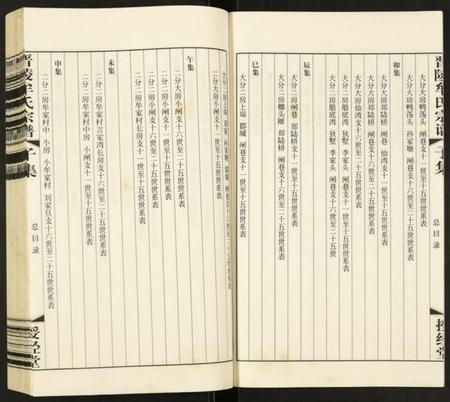 晋陵牟氏宗谱 子集
总目录
授经堂
卯集
大分大房鸭荡头 孙家塘 闸巷支十一世至十五世世系表
大分大房鸭荡头 闸巷支十六世至二十五世世系表
大分大房郑陆桥 闸巷 仙湾支十一世至十五世世系表
大分大房郑陆桥支十六世至二十五世世系表
大分大房仙湾支十六世至二十五世世系表
大分二房船底湾 狄墅 李家头 闸巷支十一世至十五世世系表
大分二房船底湾 狄墅 李家头 闸巷支十六世至二十五世世系表
辰集
大分二房闸巷 郑陆桥支十一世至十五世世系表
大分二房 郑陆桥 闸巷支十六世至二十五世世系表
大分二房上塸 郡城 闸巷支十一世至十五世世系表
巳集
午集
二分大房小闸支十一世至十五世世系表
二分大房小闸支十六世至二十五世世系表
二分二房小闸支十一世至十五世世系表
二分二房小闸支十六世至二十五世世系表
未集
二分二房牟家村长房支十一世至十五世世系表
二分二房牟家村言家湾长房支十六世至二十五世世系表
申集
二分二房牟家村中房 小闸支十一世至十五世世系表
二分二房牟家村中 小房 小牟家村 刘家旦支十六世至二十五世世系表
总目录
晋陵牟氏宗谱 子集
授经堂